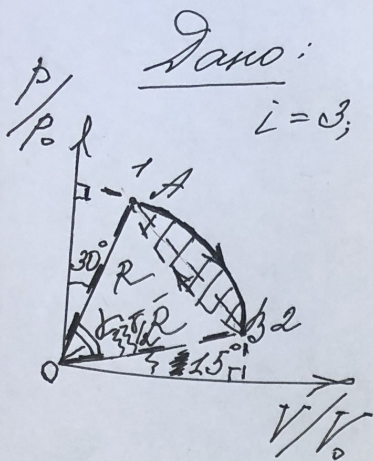 Дано:
i = 3;
P/P₀
1 A
30°
R
γ
R
B 2
15°
0
V/V₀